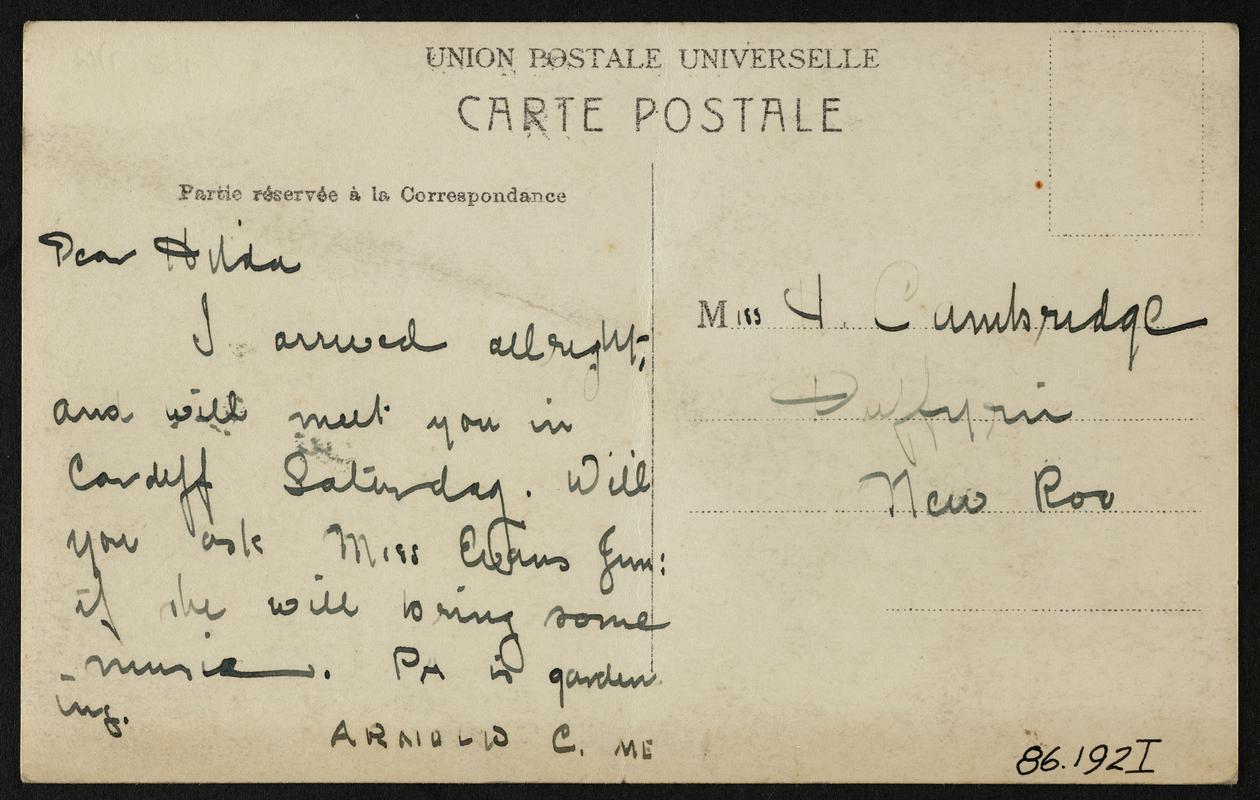 UNION POSTALE UNIVERSELLE
CARTE POSTALE
Partie réservée à la Correspondance
Dear Hilda
I arrived allright;
and will meet you in
Cardiff Saturday. Will
you ask Miss Evans Jun:
if she will bring some
music. PA is garden
ing.
ARNOLD C. ME
Miss H. Cumbridge
Duffyrin
New Roo
86.192I